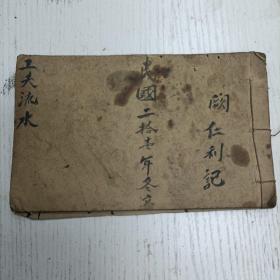 闕仁利記
民國二拾壱年冬立
工夫流水